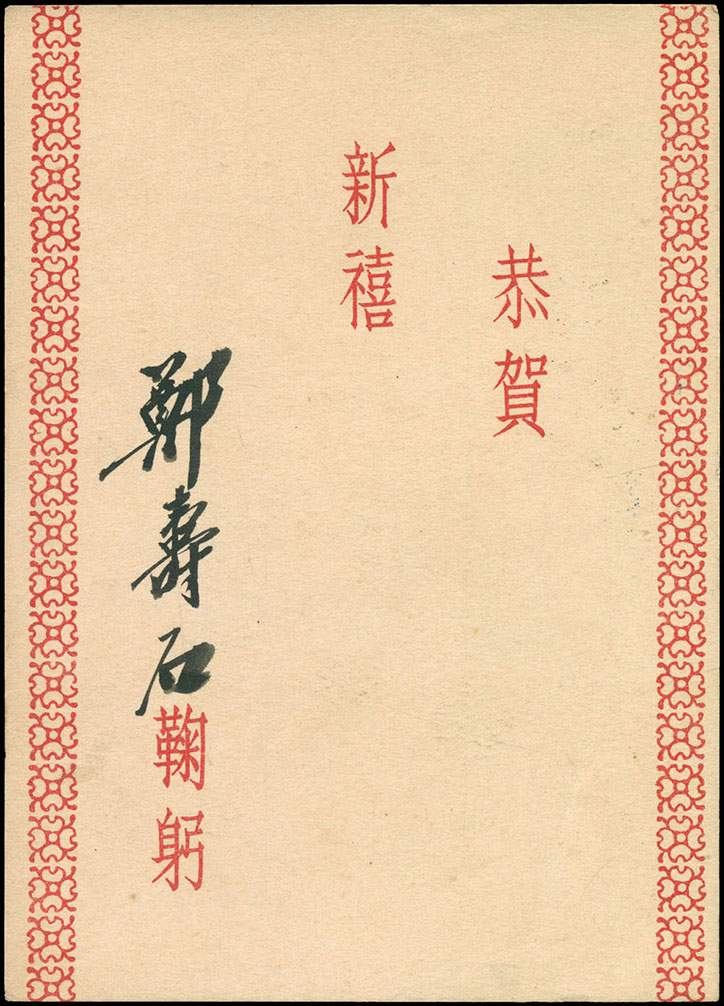 恭賀
新禧
鄭壽石鞠躬